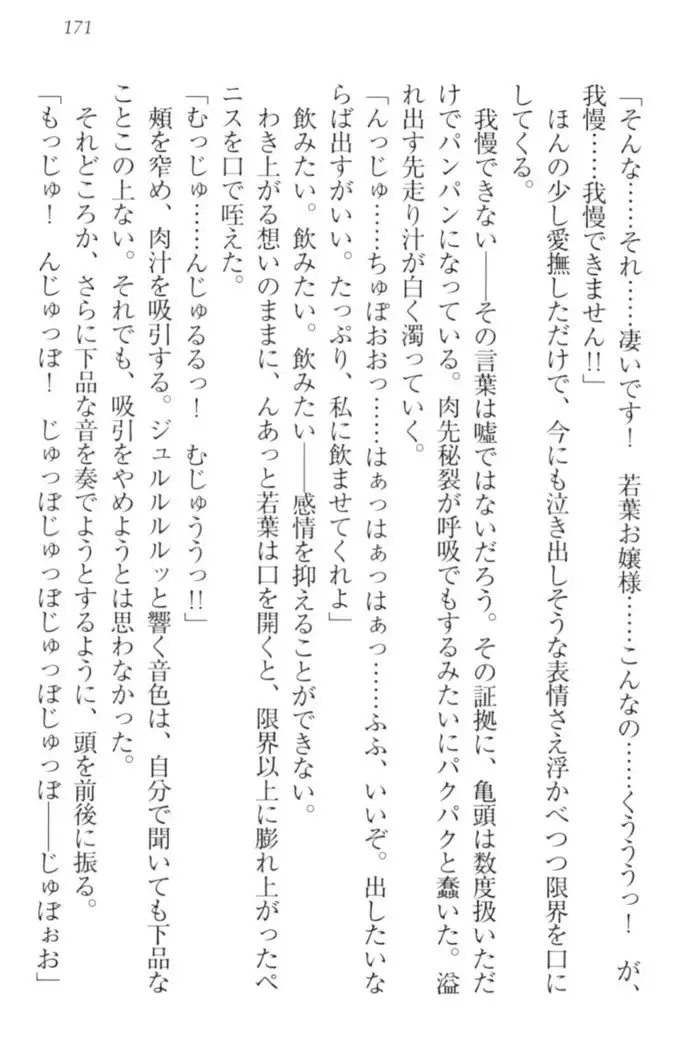 171
「そんな……それ……凄いです！　若葉お嬢様……こんなの……くうううっ！　が、
我慢……我慢できません!!」
　ほんの少し愛撫しただけで、今にも泣き出しそうな表情さえ浮かべつつ限界を口に
してくる。
　我慢できない――その言葉は嘘ではないだろう。その証拠に、亀頭は数度扱いただ
けでパンパンになっている。肉先秘裂が呼吸でもするみたいにパクパクと蠢いた。溢
れ出す先走り汁が白く濁っていく。
「んっじゅ……ちゅぽおおっ……はぁっはぁっはぁっ……ふふ、いいぞ。出したいな
らば出すがいい。たっぷり、私に飲ませてくれよ」
　飲みたい。飲みたい。飲みたい――感情を抑えることができない。
　わき上がる想いのままに、んあっと若葉は口を開くと、限界以上に膨れ上がったペ
ニスを口で咥えた。
「むっじゅ……んじゅるるっ！　むじゅううっ!!」
　頬を窄め、肉汁を吸引する。ジュルルルルッと響く音色は、自分で聞いても下品な
ことこの上ない。それでも、吸引をやめようとは思わなかった。
　それどころか、さらに下品な音を奏でようとするように、頭を前後に振る。
「もっじゅ！　んじゅっぽ！　じゅっぽじゅっぽじゅっぽ――じゅぽぉお」